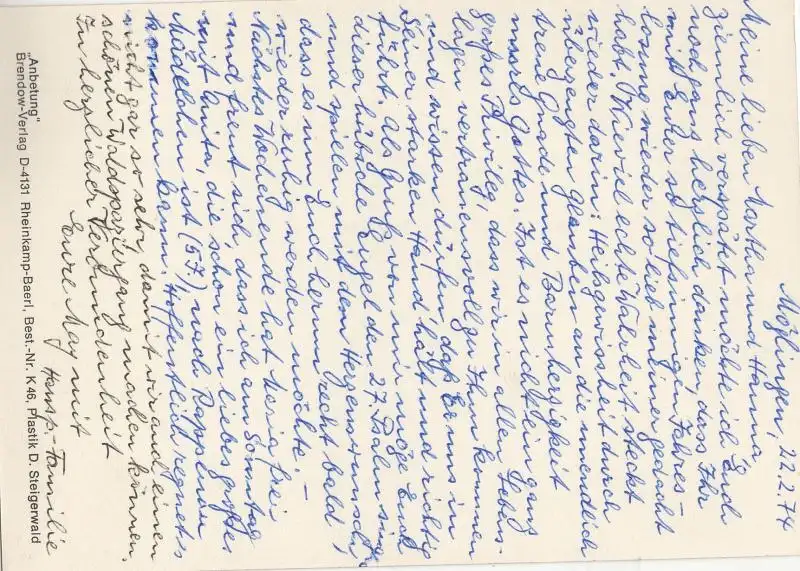 Möglingen, 22.2.74
Meine lieben Martha und Hanna
ziemlich verspätet möchte ich Euch
noch ganz herzlich danken, dass Ihr
mit Eurer so tiefsinnigen Jahres-
losung wieder so lieb meiner gedacht
habt. Wieviel echte Wahrheit steckt
wieder darin: Heilsgewissheit durch
überzeugten Glauben an die unendlich
treue Gnade und Barmherzigkeit
unsres Gottes. Ist es nicht ein ganz
großes Privileg, dass wir in allen Lebens-
lagen vertrauensvoll zu Ihm kommen
und wissen dürfen, daß Er uns in
Seiner starken Hand hält und richtig
führt. Als Gruß von mir möge Euch
dieser hübsche Engel den 27. Psalm singen
und spielen mit dem Herzenswunsch,
dass es um Euch herum recht bald
wieder ruhig werden möchte. –
Nächstes Wochenende hat Maria frei
und freut sich, dass ich am Sonntag
mit Anita, die schon ein liebes großes
Mädelchen ist (5 J.) nach Rappenau
kommen kann. Hoffentlich regnet's
nicht gar so sehr, damit wir auch einen
schönen Waldspaziergang machen können.
In herzlicher Verbundenheit
Eure May mit
Hansp.-Familie
„Anbetung"
Brendow-Verlag D-4131 Rheinkamp-Baerl, Best.-Nr. K 46, Plastik D. Steigerwald